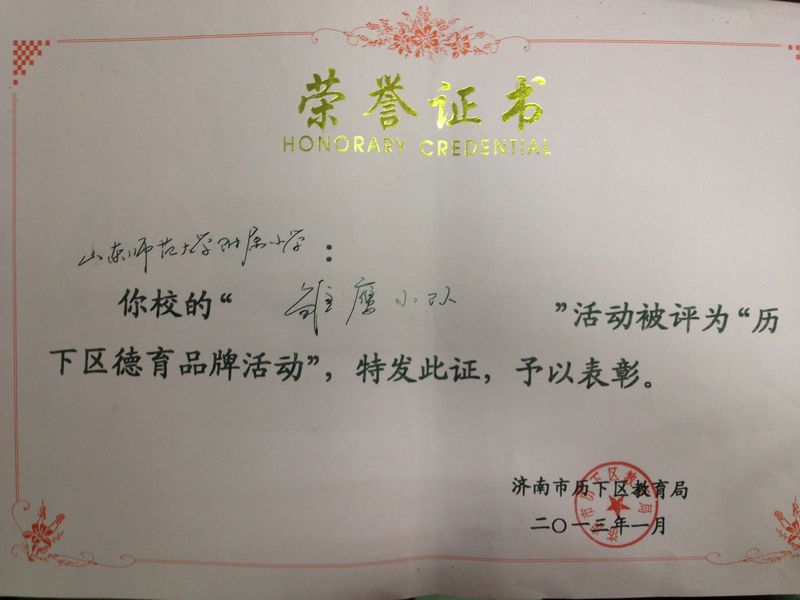 荣誉证书
HONORARY CREDENTIAL
山东师范大学附属小学：
你校的“雏鹰小队”活动被评为“历
下区德育品牌活动”，特发此证，予以表彰。
济南市历下区教育局
二〇一三年一月
济南市历下区教育局